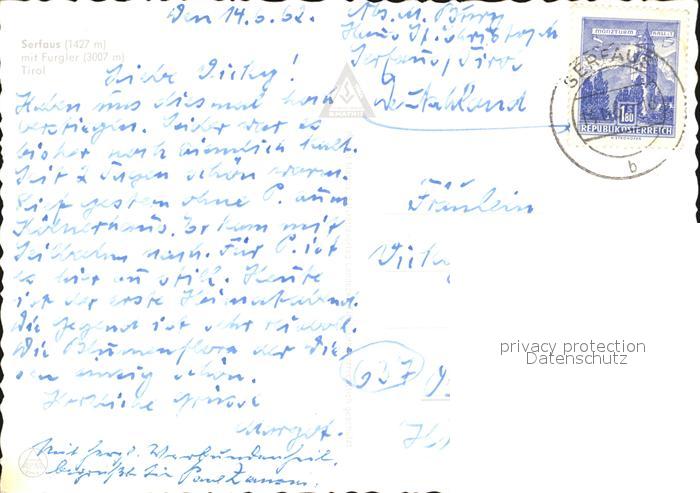 Den 14.6.62.
Abs. M. Burg
Haus St. Christoph
Serfaus/Tirol
Serfaus (1427 m)
mit Furgler (3007 m)
Tirol
Liebe Vicky!
Haben uns diesmal hoch
verstiegen. Leider war es
bisher noch ziemlich kalt.
Seit 2 Tagen schön warm.
Lief gestern ohne P. zum
Kölnerhaus. Er kam mit
Seilbahn nach. Für P. ist
es hier zu still. Heute
ist der erste Heimatabend.
Die Gegend ist sehr reizvoll.
Die Blumenflora der Wie-
sen einzig schön.
Herzliche Grüsse
Margot.
Mit herzl. Verbundenheit
begrüßt Sie Paul
Fräulein
Vicky
637
MÜNZTURM HALL i.T.
1.80
REPUBLIK ÖSTERREICH
SERFAUS
b
privacy protection
Datenschutz